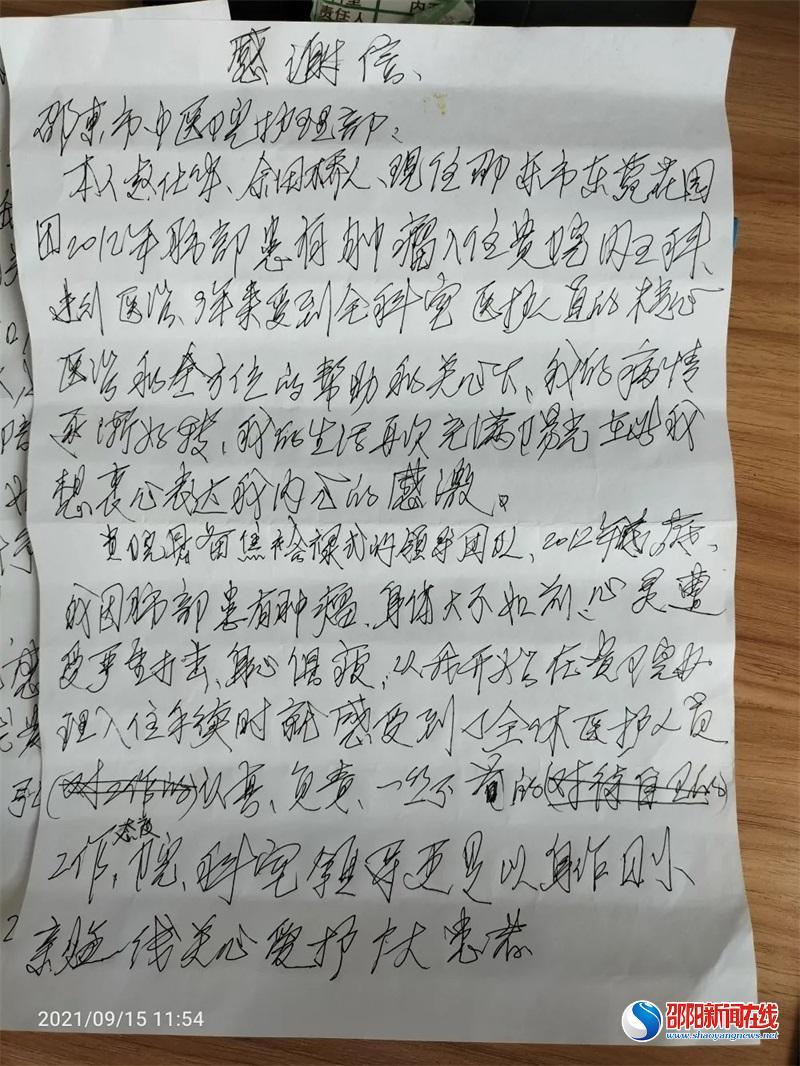 责任人
感谢信、
邵东市中医院护理部：
本人赵仕华、余田桥人、现住邵东市东苑花园
因2012年肺部患有肿瘤入住贵院内三科、
达到医治、9年来受到全科室医护人员的精心
医治和全方位的帮助和关心下、我的病情
逐渐好转，我的生活再次充满阳光在此我
想衷心表达我内心的感激。
贵院具备焦裕禄式好领导团队、2012年
我因肺部患有肿瘤、身体大不如前、心灵遭
受严重打击、身心俱疲，从我开始在贵院办
理入住手续时就感受到了全体医护人员
(对工作的)认真、负责、一丝不苟的(对待自己的)
态度
工作，院、科室领导更是以身作则
亲临一线关心爱护广大患者
2021/09/15 11:54
邵阳新闻在线
www.shaoyangnews.net